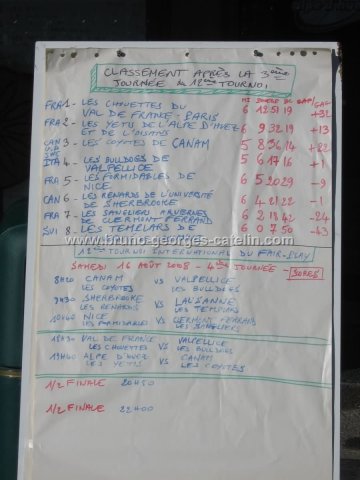 CLASSEMENT APRÈS LA 3ème
JOURNÉE du 12ème TOURNOI
FRA 1 - LES CHOUETTES DU
VAL DE FRANCE - PARIS 6 12 51 19 +32
FRA 2 - LES YETIS DE L'ALPE D'HUEZ
ET DE L'OISANS 6 9 32 19 +13
CAN 3 - LES COYOTES DE CANAM 5 8 36 14 +22
USA
ITA 4 - LES BULLDOGS DE
VALPELLICE 5 6 17 16 +1
FRA 5 - LES FORMIDABLES DE
NICE 6 5 20 29 -9
CAN 6 - LES RENARDS DE L'UNIVERSITÉ
DE SHERBROOKE 6 4 21 22 -1
FRA 7 - LES SANGLIERS ARVERNES
DE CLERMONT FERRAND 6 2 18 42 -24
SUI 8 - LES TEMPLARS DE 6 0 7 50 -43
www.bruno-georges-catelin.com
12ème TOURNOI INTERNATIONAL DU FAIR-PLAY
SAMEDI 16 AOÛT 2008 - 4ème JOURNÉE
8H20 CANAM VS VALPELLICE
LES COYOTES LES BULLDOGS
9H30 SHERBROOKE VS LAUSANNE
LES RENARDS LES TEMPLARS
10H40 NICE VS CLERMONT FERRAND
LES FORMIDABLES LES SANGLIERS
VAL DE FRANCE VS VALPELLICE
LES CHOUETTES LES BULLDOGS
19H40 ALPE D'HUEZ VS CANAM
LES YETIS LES COYOTES
1/2 FINALE 20H50
1/2 FINALE 22H00